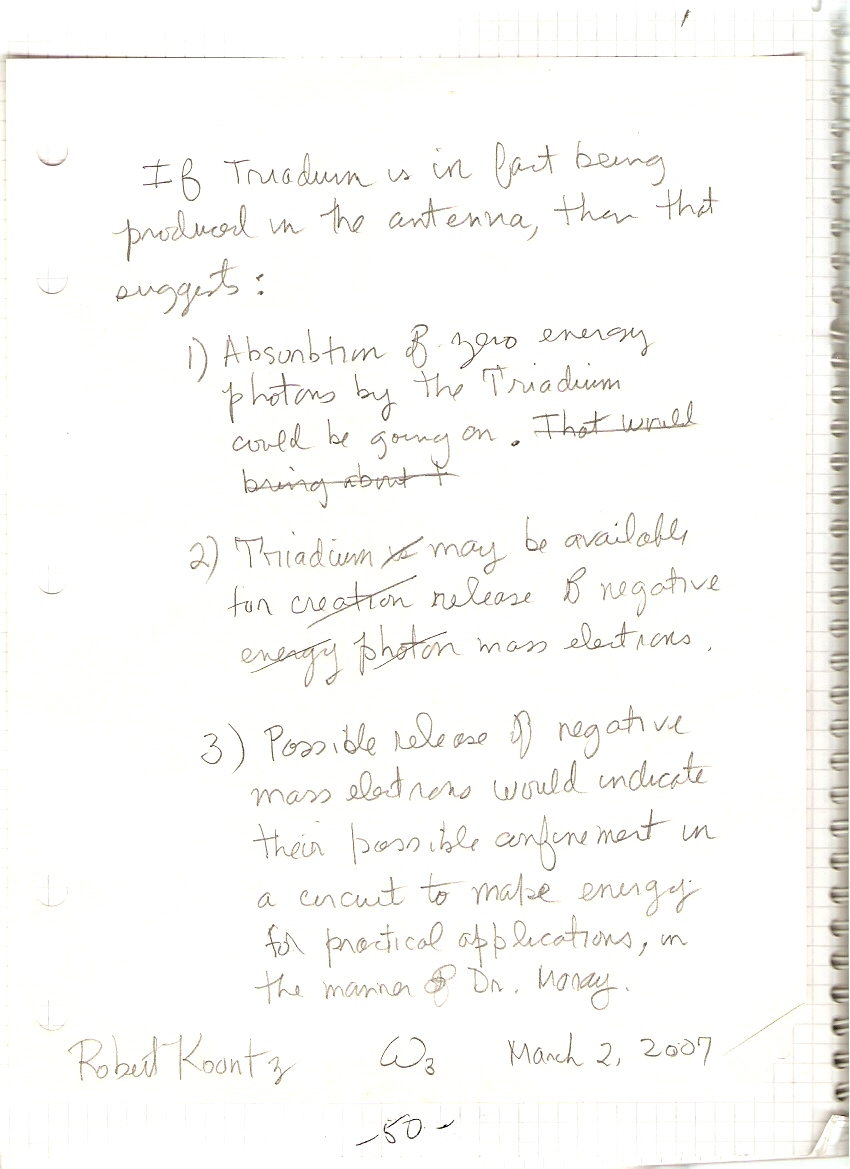 If Triadium is in fact being
produced in the antenna, then that
suggests:
1) Absorbtion of zero energy
photons by the Triadium
could be going on. That would
bring about t
2) Triadium is may be available
for creation release of negative
energy photon mass electrons.
3) Possible release of negative
mass electrons would indicate
their possible confinement in
a circuit to make energy
for practical applications, in
the manner of Dr. Moray.
Robert Koontz ω3 March 2, 2007
-50-